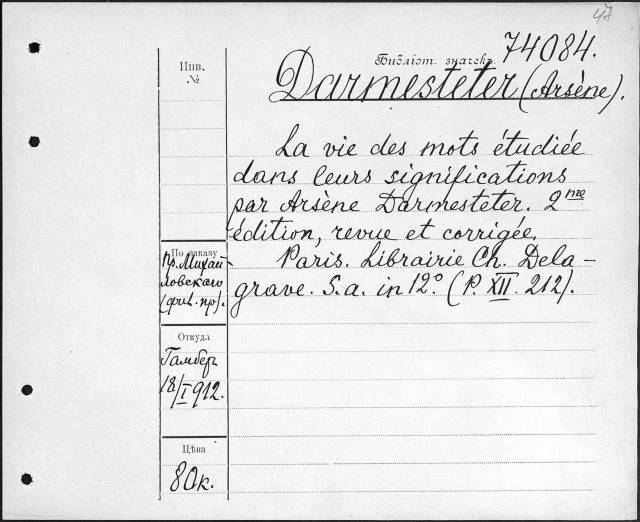 47
Библіот. значекъ 74084.
Инв.
№
Darmesteter (Arsène).
La vie des mots étudiée
dans leurs significations
par Arsène Darmesteter. 2me
édition, revue et corrigée.
Paris. Librairie Ch. Dela-
grave. S.a. in 12° (P. XII. 212).
По заказу
Пр. Михай-
ловскаго
(фил. пр).
Откуда
Гамбер
18/I 912.
Цѣна
80к.